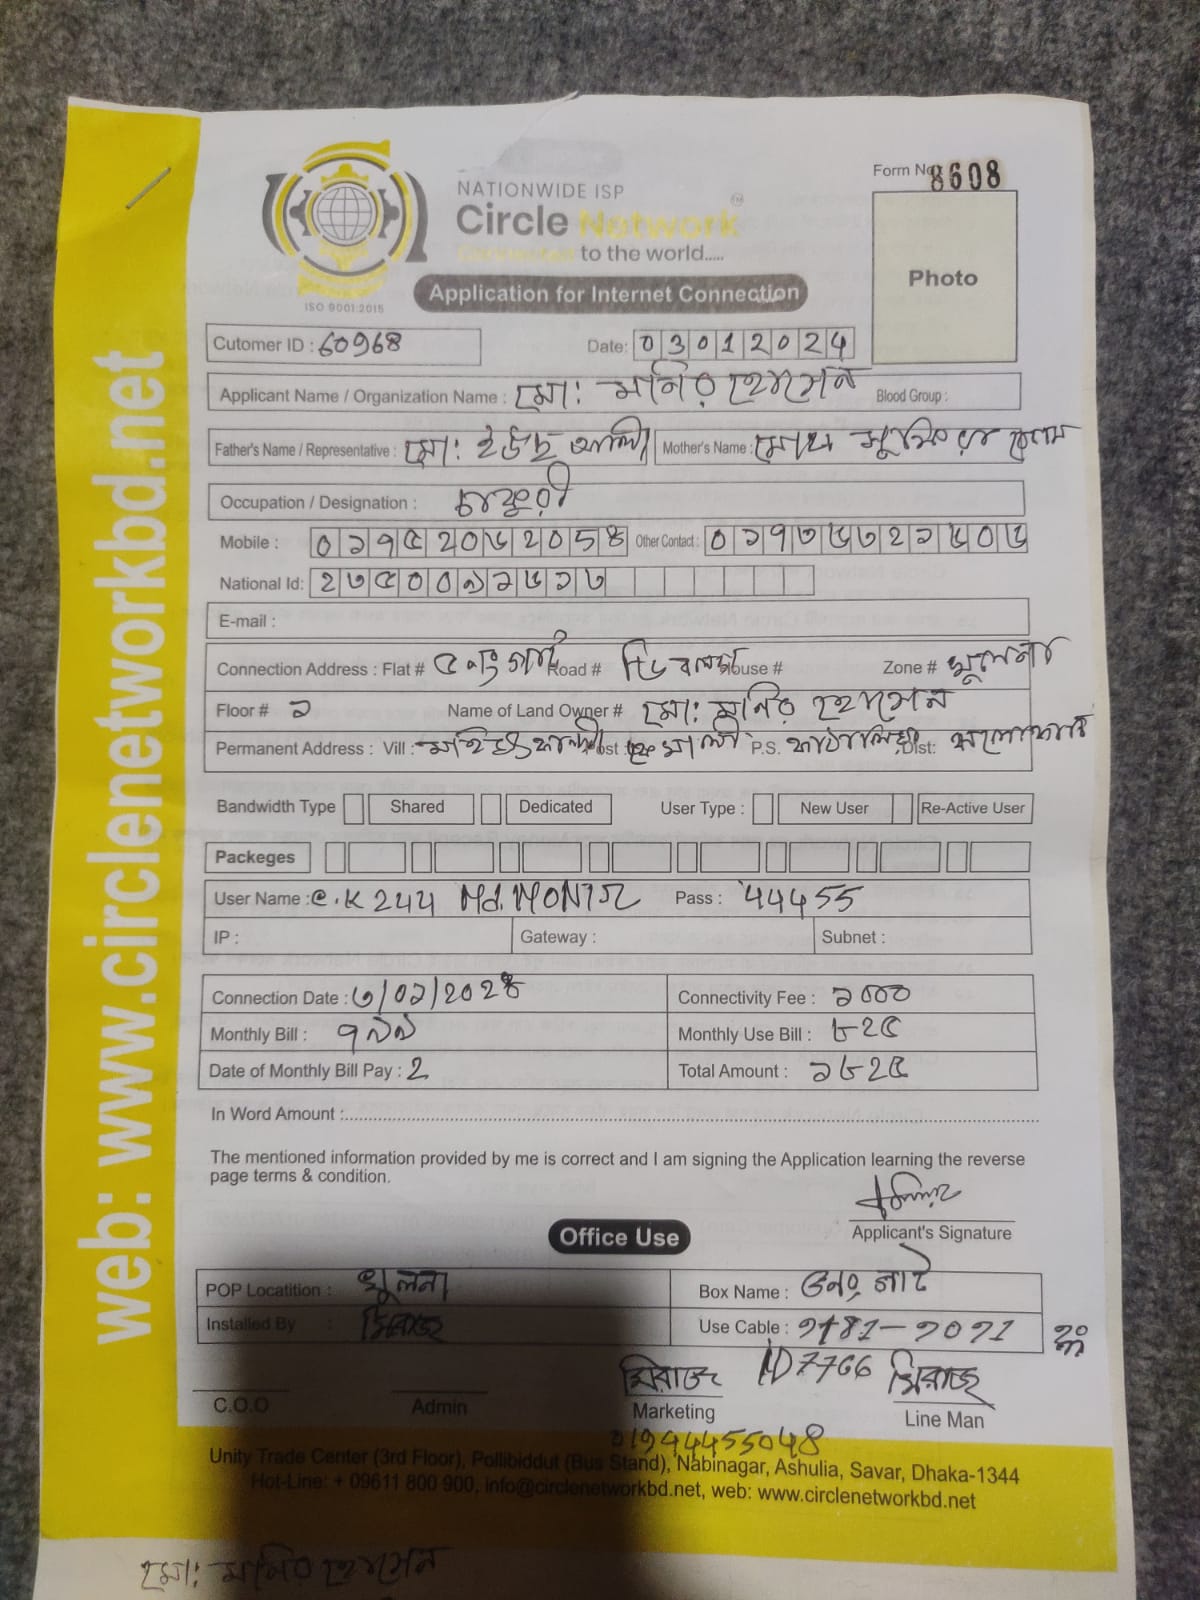 Form No: 8608
NATIONWIDE ISP
Circle Network™
to the world.....
ISO 9001:2015
Application for Internet Connection
Photo
web: www.circlenetworkbd.net
Cutomer ID : 60968 Date: 03012024
Applicant Name / Organization Name : মো: মনির হোসেন Blood Group :
Father's Name / Representative : মো: আলী Mother's Name :
Occupation / Designation : চাকুরী
Mobile : Other Contact :
National Id:
E-mail :
Connection Address : Flat # ৫ নং Road # House # Zone # খুলনা
Floor # ১ Name of Land Owner # মো: মনির হোসেন
Permanent Address : Vill : P.S. Dist:
Bandwidth Type Shared Dedicated User Type : New User Re-Active User
Packeges
User Name : Md. MONIR Pass : 44455
IP : Gateway : Subnet :
Connection Date : ৩/০১/২০২৪ Connectivity Fee : ১০০০
Monthly Bill : ৭৯৯ Monthly Use Bill : ৮২৫
Date of Monthly Bill Pay : 2 Total Amount : ১৮২৫
In Word Amount :
The mentioned information provided by me is correct and I am signing the Application learning the reverse
page terms & condition.
Applicant's Signature
Office Use
POP Locatition : খুলনা Box Name :
Installed By : মিরাজ Use Cable :
মিরাজ ID 7766 মিরাজ
C.O.O Admin Marketing Line Man
01944455048
Unity Trade Center (3rd Floor), Pollibiddut (Bus Stand), Nabinagar, Ashulia, Savar, Dhaka-1344
Hot-Line: + 09611 800 900, info@circlenetworkbd.net, web: www.circlenetworkbd.net
মো: মনির হোসেন